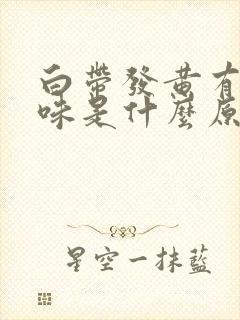 白帶發黃有
味是什麼原
星空一抹藍